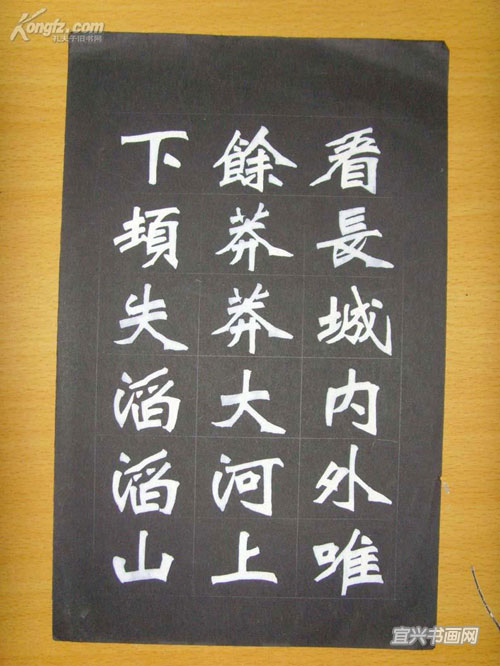 看長城内外唯
餘莽莽大河上
下頓失滔滔山
Kongfz.com
孔夫子旧书网
宜兴书画网